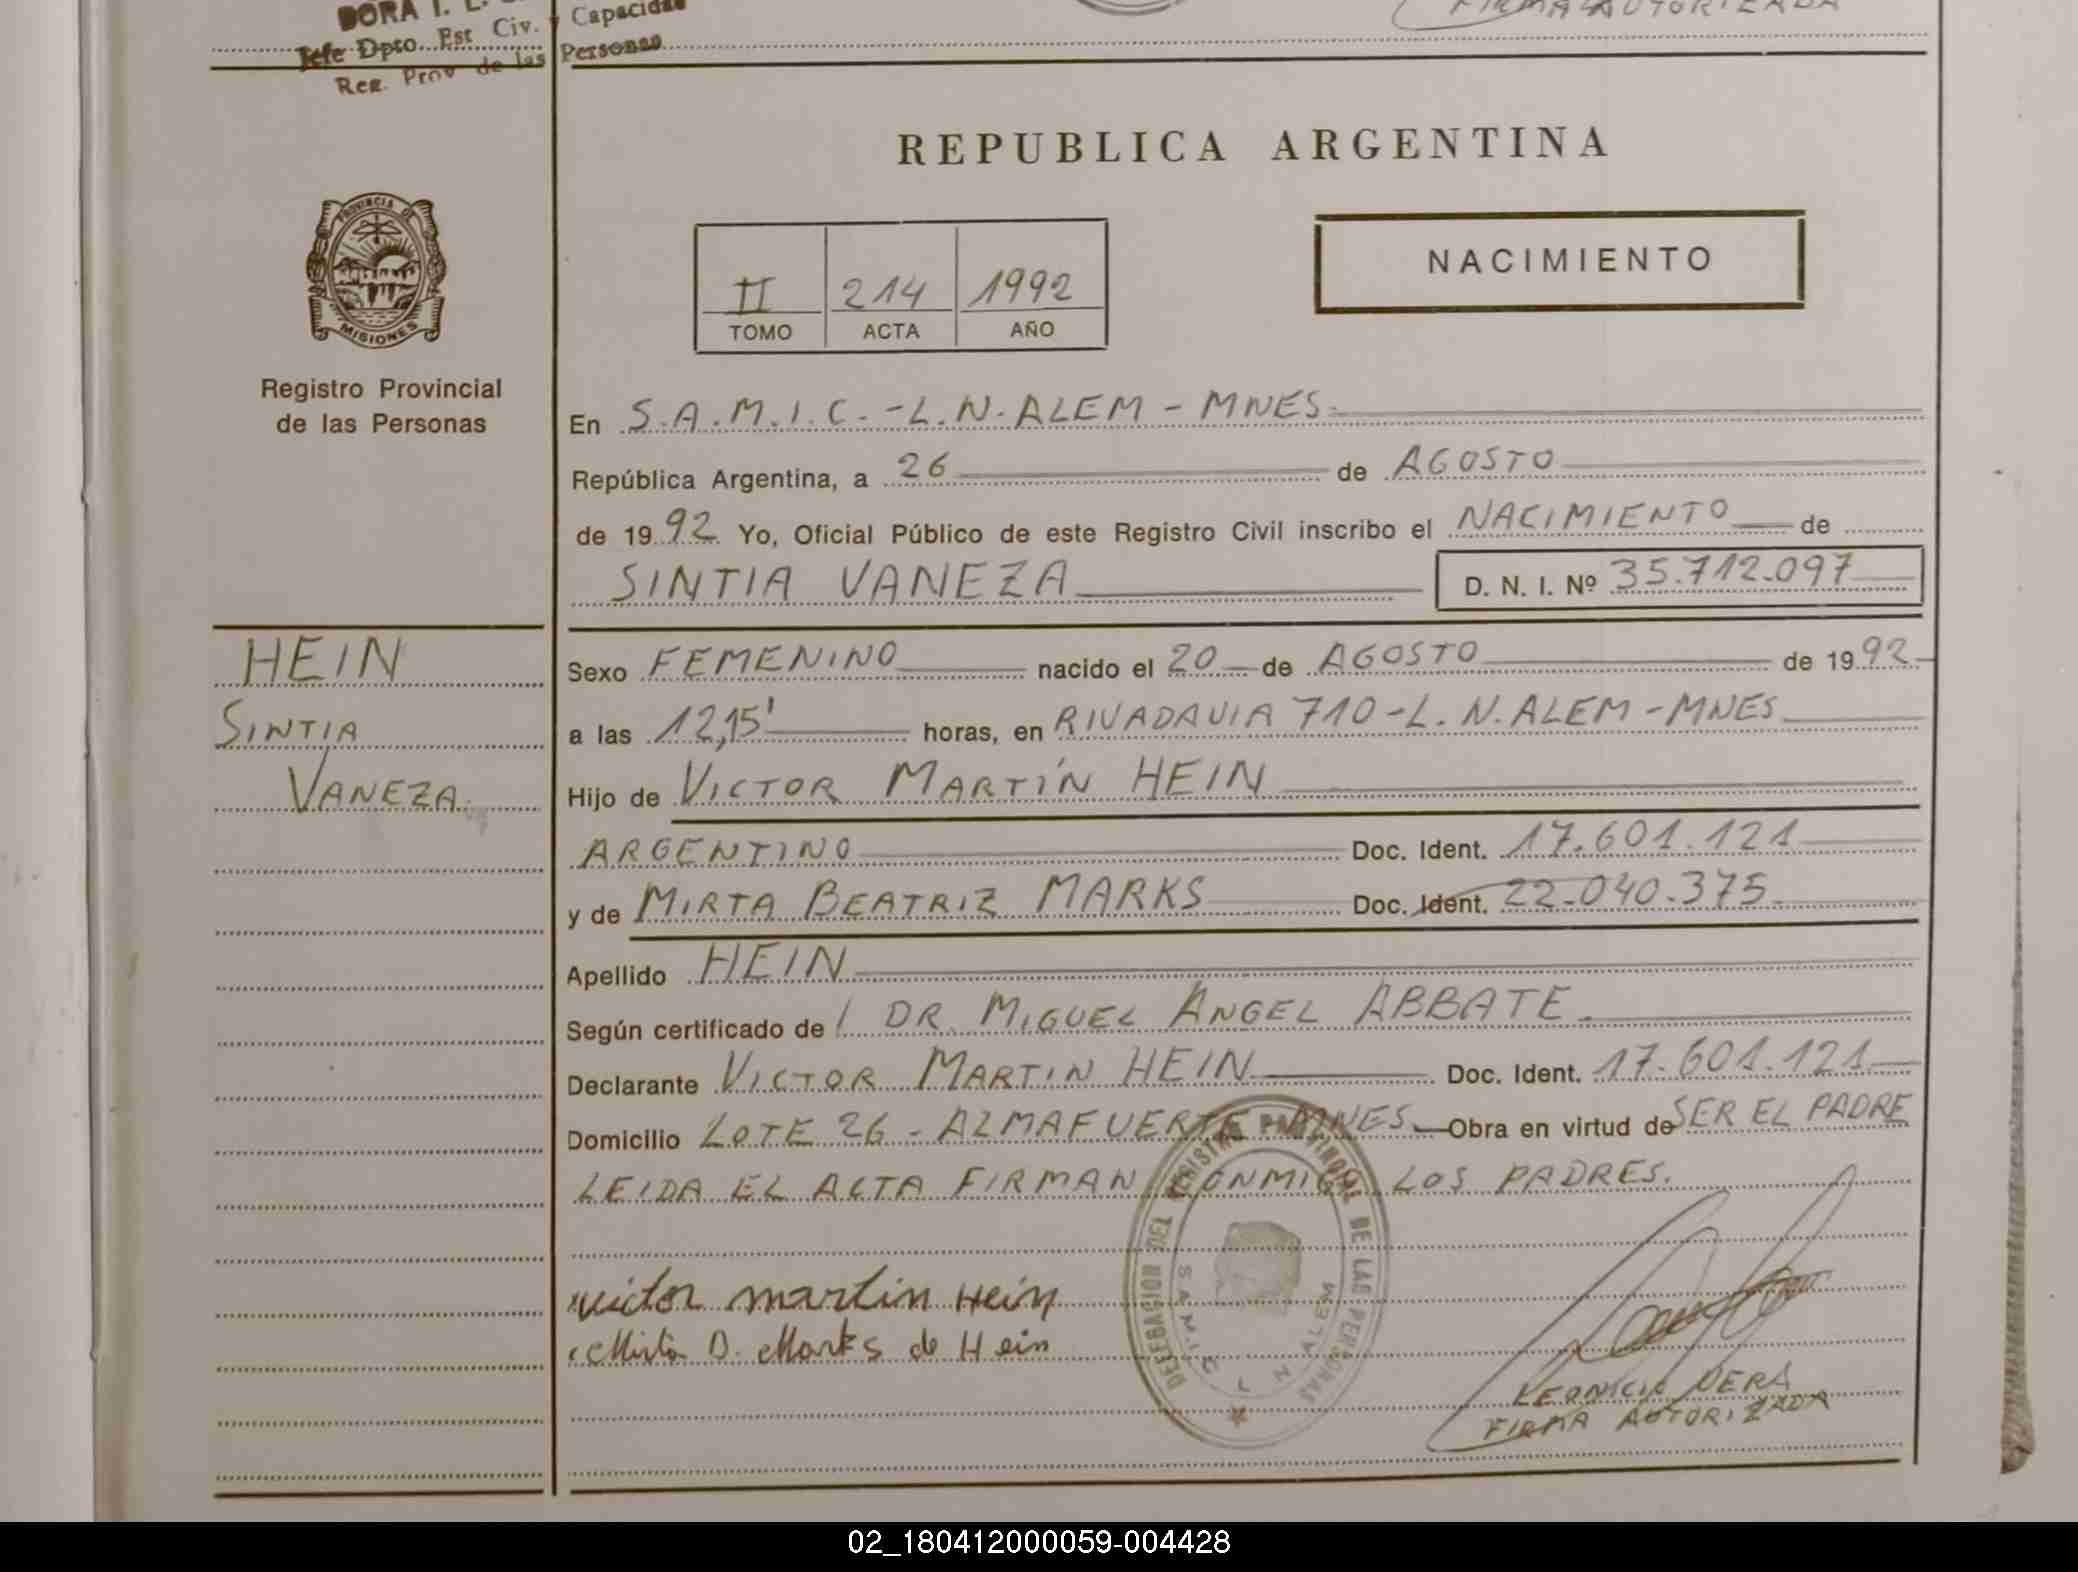 DORA I. L.
Jefe Dpto. Est Civ. y Capacidad
Reg. Prov de las Personas
FIRMA AUTORIZADA
REPUBLICA ARGENTINA
PROVINCIA DE
MISIONES
II 214 1992
TOMO ACTA AÑO
NACIMIENTO
Registro Provincial
de las Personas
En S.A.M.I.C.-L.N.ALEM-MNES.
República Argentina, a 26 de AGOSTO
de 1992 Yo, Oficial Público de este Registro Civil inscribo el NACIMIENTO de
SINTIA VANEZA D. N. I. Nº 35.712.097
HEIN
SINTIA
VANEZA.
Sexo FEMENINO nacido el 20 de AGOSTO de 1992
a las 12,15' horas, en RIVADAVIA 710-L.N.ALEM-MNES
Hijo de VICTOR MARTÍN HEIN
ARGENTINO Doc. Ident. 17.601.121
y de MIRTA BEATRIZ MARKS Doc. Ident. 22.040.375
Apellido HEIN
Según certificado de DR. MIGUEL ANGEL ABBATE.
Declarante VICTOR MARTIN HEIN Doc. Ident. 17.601.121
Domicilio LOTE 26 - ALMAFUERTE MNES. Obra en virtud de SER EL PADRE
LEIDA EL ACTA FIRMAN CONMIGO LOS PADRES.
victor martin Hein
Mirta B. Marks de Hein
DELEGACION DEL REGISTRO PROVINCIAL DE LAS PERSONAS
S.A.M.I.C. L N ALEM
FIRMA AUTORIZADA
02_180412000059-004428